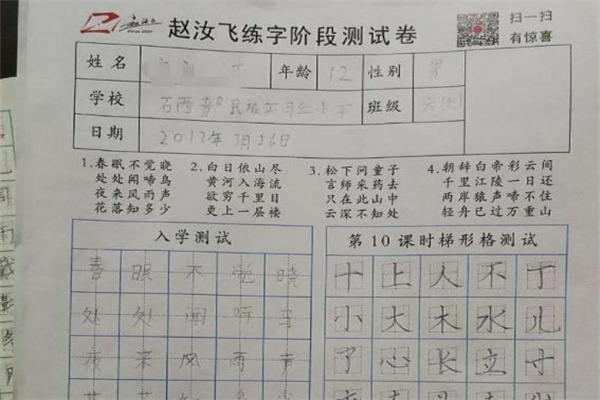 赵汝飞练字阶段测试卷
扫一扫
有惊喜
姓名 年龄 12 性别 男
学校 班级
日期 2017年7月26日
1.春眠不觉晓
处处闻啼鸟
夜来风雨声
花落知多少
2.白日依山尽
黄河入海流
欲穷千里目
更上一层楼
3.松下问童子
言师采药去
只在此山中
云深不知处
4.朝辞白帝彩云间
千里江陵一日还
两岸猿声啼不住
轻舟已过万重山
入学测试
春眠不觉晓
处处闻啼鸟
夜来风雨声
第10课时梯形格测试
十上人不丁
小大木水儿
了心长立寸